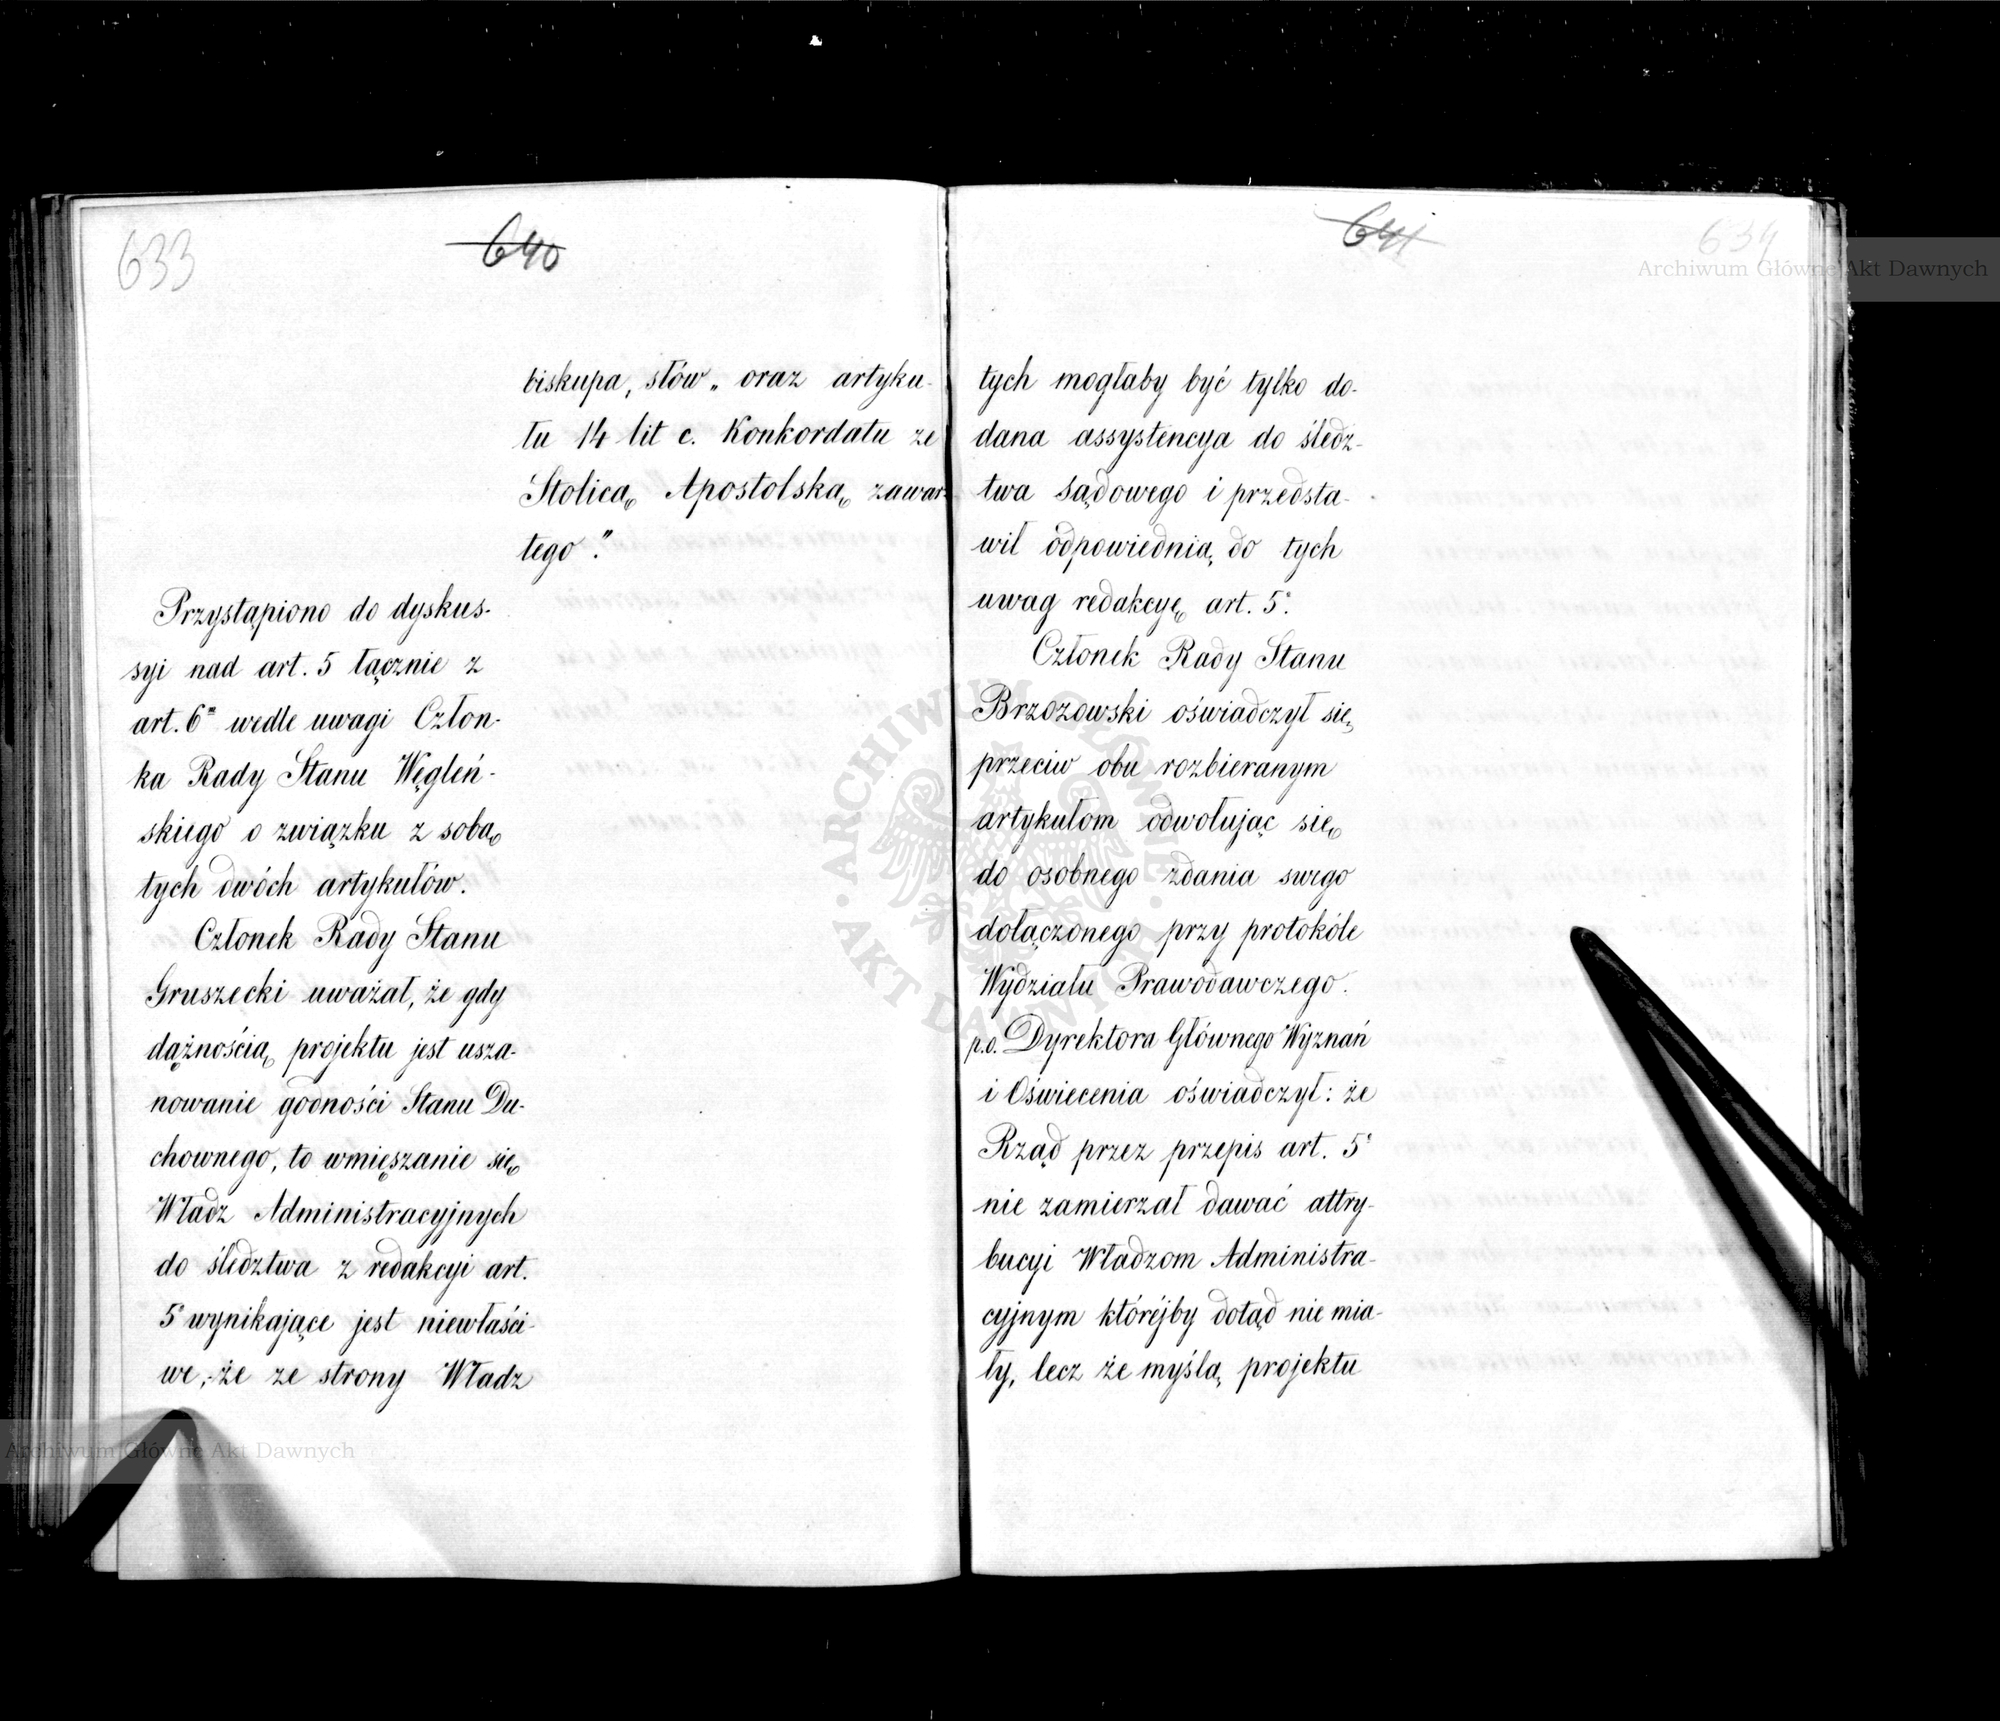 633
640
biskupa, słów „ oraz artyku-
łu 14 lit c. Konkordatu ze
Stolicą Apostolską zawar-
tego".
Przystąpiono do dyskus-
syi nad art. 5 łącznie z
art. 6m wedle uwagi Człon-
ka Rady Stanu Węgleń-
skiego o związku z sobą
tych dwóch artykułów.
Członek Rady Stanu
Gruszecki uważał, że gdy
dążnością projektu jest usza-
nowanie godności Stanu Du-
chownego, to wmięszanie się
Władz Administracyjnych
do śledztwa z redakcyi art.
5o wynikające jest niewłaści-
we, że ze strony Władz
641
634
tych mogłaby być tylko do-
dana assystencya do śledz-
twa sądowego i przedsta-
wił odpowiednią do tych
uwag redakcyę art. 5o.
Członek Rady Stanu
Brzozowski oświadczył się
przeciw obu rozbieranym
artykułom odwołując się
do osobnego zdania swego
dołączonego przy protokóle
Wydziału Prawodawczego.
p.o. Dyrektora Głównego Wyznań
i Oświecenia oświadczył: że
Rząd przez przepis art. 5o
nie zamierzał dawać attry-
bucyi Władzom Administra-
cyjnym któréjby dotąd nie mia-
ły, lecz że myślą projektu
Archiwum Główne Akt Dawnych
Archiwum Główne Akt Dawnych
ARCHIWUM GŁÓWNE · AKT DAWNYCH ·